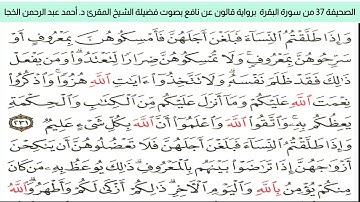 الصحيفة 37 من سورة البقرة برواية قالون عن نافع بصوت فضيلة الشيخ المقرئ د. أحمد عبد الرحمن الخجا
وَإِذَا طَلَّقْتُمُ النِّسَآءَ فَبَلَغْنَ أَجَلَهُنَّ فَأَمْسِكُوهُنَّ بِمَعْرُوفٍ أَوْ
سَرِّحُوهُنَّ بِمَعْرُوفٍ وَلَا تُمْسِكُوهُنَّ ضِرَارًا لِّتَعْتَدُوا وَمَنْ يَّفْعَلْ
ذَٰلِكَ فَقَد ظَّلَمَ نَفْسَهُ وَلَا تَتَّخِذُوا ءَايَٰتِ اللَّهِ هُزُؤًا وَاذْكُرُوا
نِعْمَتَ اللَّهِ عَلَيْكُمْ وَمَا أَنزَلَ عَلَيْكُم مِّنَ الْكِتَٰبِ وَالْحِكْمَةِ
يَعِظُكُم بِهِ وَاتَّقُوا اللَّهَ وَاعْلَمُوا أَنَّ اللَّهَ بِكُلِّ شَيْءٍ عَلِيمٌ ٢٣١
وَإِذَا طَلَّقْتُمُ النِّسَآءَ فَبَلَغْنَ أَجَلَهُنَّ فَلَا تَعْضُلُوهُنَّ أَنْ يَّنكِحْنَ
أَزْوَٰجَهُنَّ إِذَا تَرَٰضَوْا بَيْنَهُم بِالْمَعْرُوفِ ذَٰلِكَ يُوعَظُ بِهِ مَن كَانَ
مِنكُمْ يُؤْمِنُ بِاللَّهِ وَالْيَوْمِ الْآخِرِ ذَٰلِكُمْ أَزْكَىٰ لَكُمْ وَأَطْهَرُ وَاللَّهُ